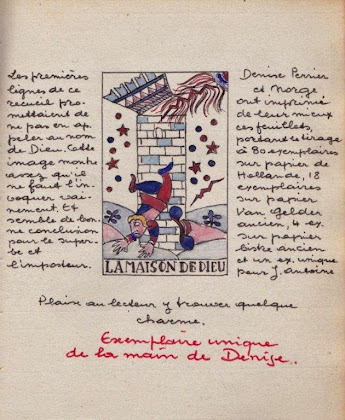 Les premières
lignes de ce
recueil pro-
mettaient de
ne pas en ap-
peler au nom
de Dieu. Cette
image montre
assez qu'il
ne faut l'in-
voquer vai-
nement. Et
semble de bon-
ne conclusion
pour le super-
be et
l'imposteur.
LA MAISON DE DIEU
Denise Perrier
et Norge
ont imprimé
de leur mieux
ces feuillets,
portant le tirage
à 80 exemplaires
sur papier de
Hollande, 18
exemplaires
sur papier
Van Gelder
ancien, 4 ex.
sur papier
bistre ancien
et un ex. unique
pour J. Antoine
Plaise au lecteur y trouver quelque
charme.
Exemplaire unique
de la main de Denise..